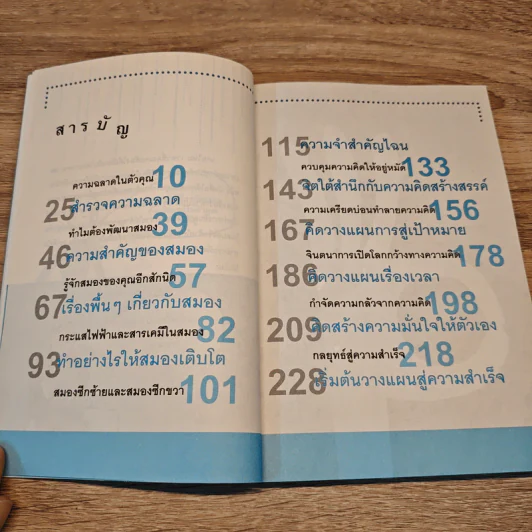 สารบัญ
ความฉลาดในตัวคุณ 10
25 สำรวจความฉลาด
ทำไมต้องพัฒนาสมอง 39
46 ความสำคัญของสมอง
รู้จักสมองของคุณอีกสักนิด 57
67 เรื่องพื้นๆ เกี่ยวกับสมอง
กระแสไฟฟ้าและสารเคมีในสมอง 82
93 ทำอย่างไรให้สมองเติบโต
สมองซีกซ้ายและสมองซีกขวา 101
115 ความจำสำคัญไฉน
ควบคุมความคิดให้อยู่หมัด 133
143 จิตใต้สำนึกกับความคิดสร้างสรรค์
ความเครียดบ่อนทำลายความคิด 156
167 คิดวางแผนการสู่เป้าหมาย
จินตนาการเปิดโลกกว้างทางความคิด 178
186 คิดวางแผนเรื่องเวลา
กำจัดความกลัวจากความคิด 198
209 คิดสร้างความมั่นใจให้ตัวเอง
กลยุทธ์สู่ความสำเร็จ 218
228 เริ่มต้นวางแผนสู่ความสำเร็จ